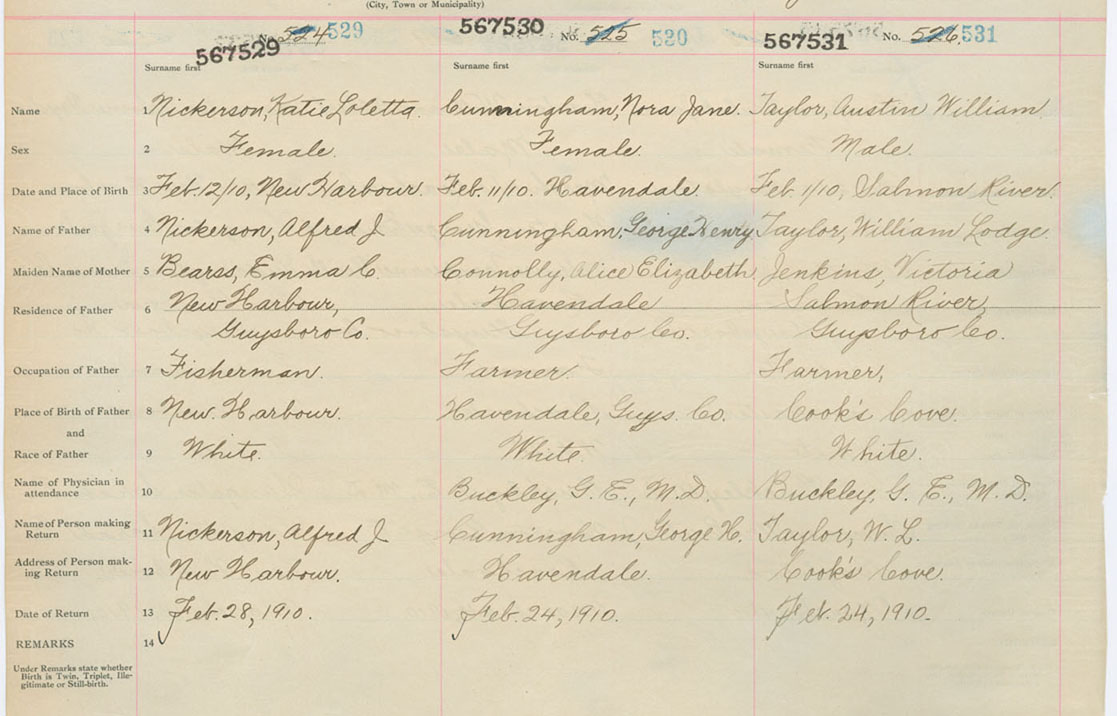 (City, Town or Municipality)
567529 No. 524 529 567530 No. 525 530 567531 No. 526. 531
Surname first Surname first Surname first
Name 1 Nickerson, Katie Loletta. Cunningham, Nora Jane. Taylor, Austin William
Sex 2 Female. Female. Male.
Date and Place of Birth 3 Feb. 12/10, New Harbour. Feb. 11/10. Havendale. Feb. 1/10, Salmon River.
Name of Father 4 Nickerson, Alfred J Cunningham, George Henry Taylor, William Lodge.
Maiden Name of Mother 5 Bearss, Emma C. Connolly, Alice Elizabeth Jenkins, Victoria
Residence of Father 6 New Harbour, Havendale Salmon River,
Guysboro Co. Guysboro Co. Guysboro Co.
Occupation of Father 7 Fisherman. Farmer. Farmer,
Place of Birth of Father 8 New. Harbour. Havendale, Guys. Co. Cook's Cove.
and
Race of Father 9 White. White. White.
Name of Physician in
attendance 10 Buckley, G. E., M.D. Buckley, G. E., M.D.
Name of Person making
Return 11 Nickerson, Alfred J Cunningham, George H. Taylor, W. L.
Address of Person mak-
ing Return 12 New Harbour. Havendale. Cook's Cove.
Date of Return 13 Feb. 28, 1910. Feb. 24, 1910. Feb. 24, 1910.
REMARKS 14
Under Remarks state whether
Birth is Twin, Triplet, Ille-
gitimate or Still-birth.